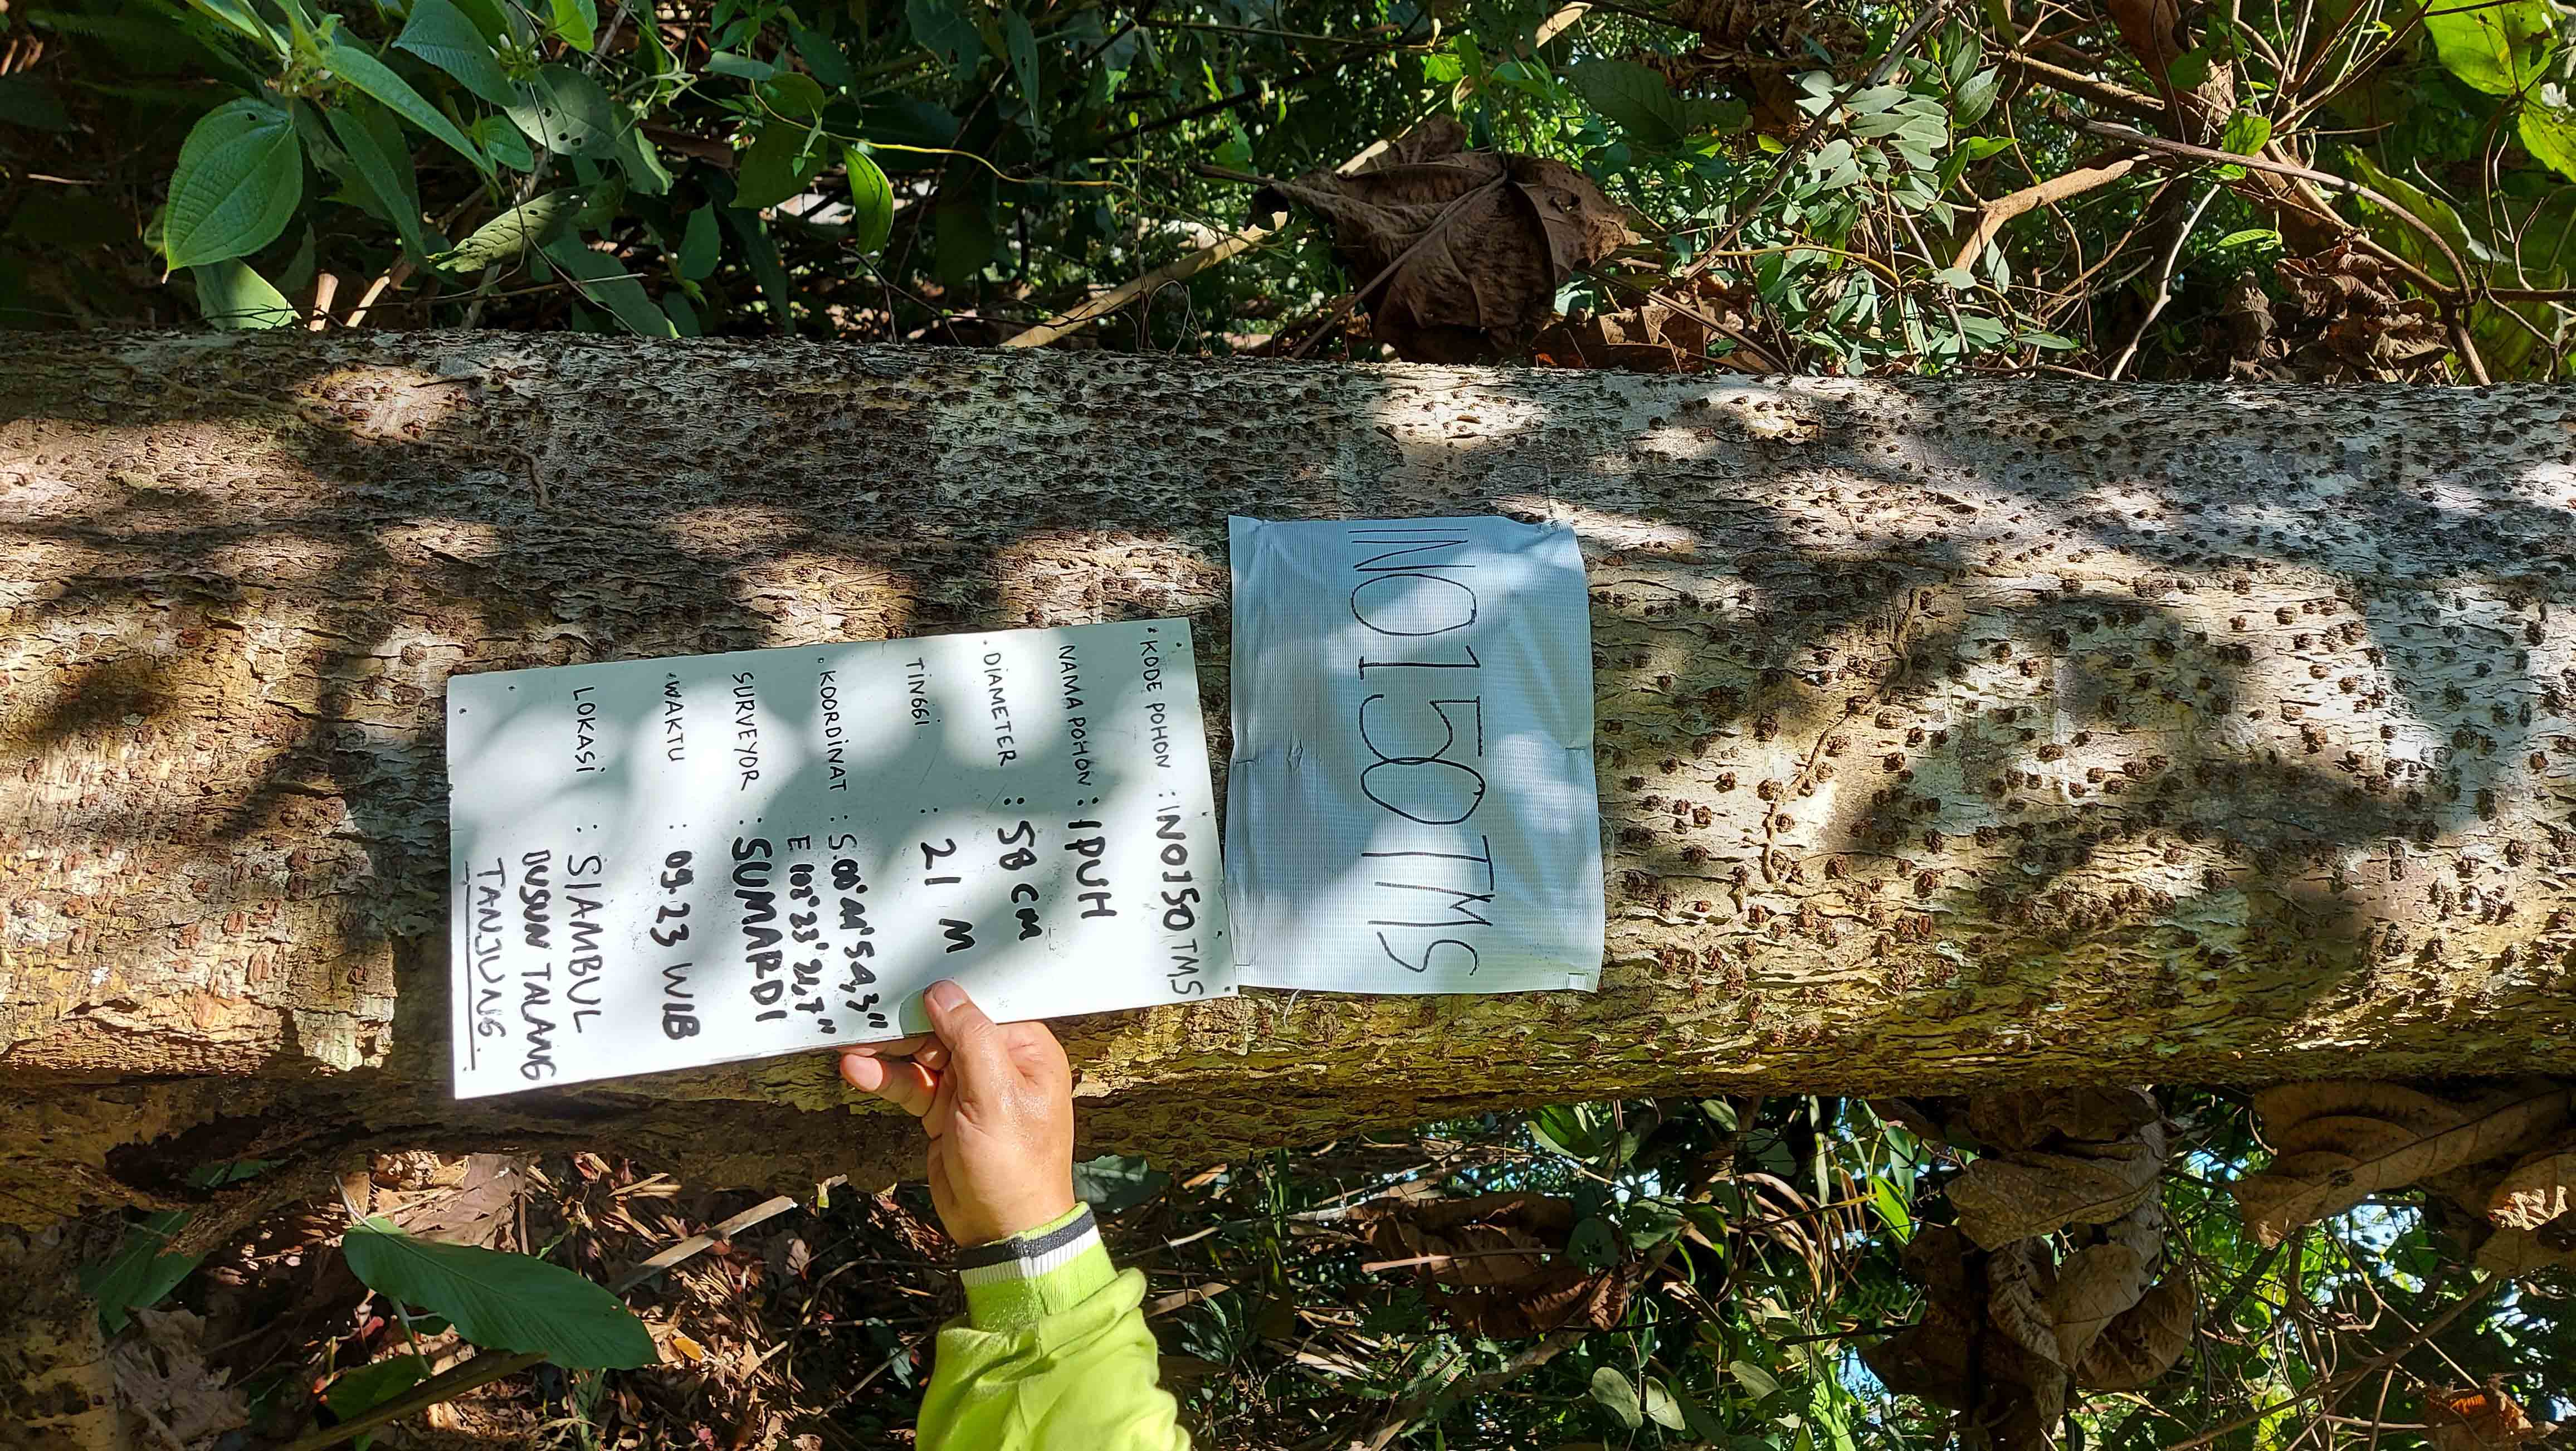 INO150TMS
KODE POHON : INO150 TMS
NAMA POHON : IPUH
DIAMETER : 58 CM
TINGGI : 21 M
KOORDINAT : S.00°44'54,3"
E 102°23'21,7"
SURVEYOR : SUMARDI
WAKTU : 09.23 WIB
LOKASI : SIAMBUL
DUSUN TALANG
TANJUNG.